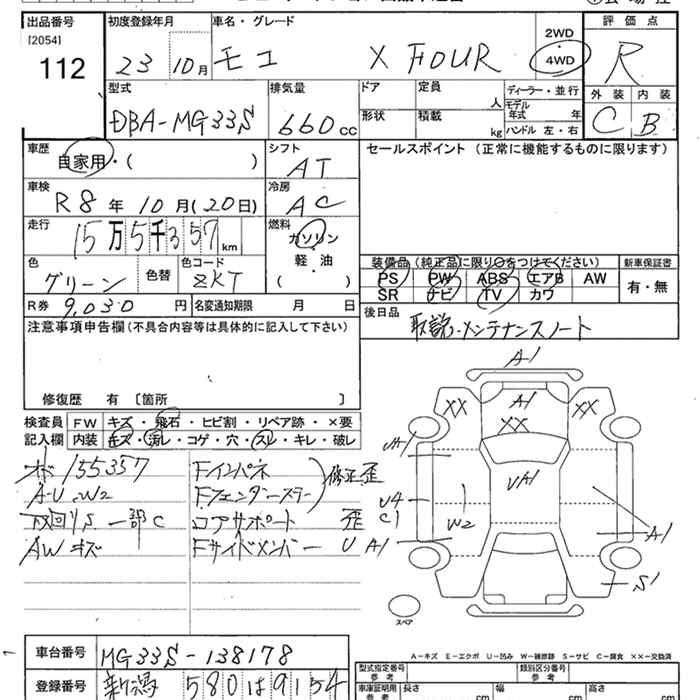 出品番号
[2054]
112
初度登録年月
23 10月
車名・グレード
モコ X FOUR
2WD
・
4WD
評価点
R
外装 内装
C B
型式
DBA-MG33S
排気量
660cc
ドア
定員
人
形状
積載
kg
ディーラー・並行
モデル
年式 年
ハンドル 左・右
車歴
自家用・( )
シフト
AT
セールスポイント (正常に機能するものに限ります)
車検
R8年 10月(20日)
冷房
AC
走行
15万5千357km
燃料
ガソリン
軽・油
( )
色
グリーン
色替
色コード
ZKT
装備品(純正品に限り○をつけてください)
新車保証書
PS PW ABS エアB AW
SR ナビ TV カワ
有・無
R券 9,030円
名変通知期限 月 日
後日品
取説・メンテナンスノート
注意事項申告欄(不具合内容等は具体的に記入して下さい)
修復歴 有 〔箇所 〕
検査員
記入欄
FW キズ・飛石・ヒビ割・リペア跡・×要
内装 キズ・汚レ・コゲ・穴・スレ・キレ・破レ
155357
A・U・W2
下回りS 一部C
AWキズ
Fインパネ
Fフェンダーステー
修正歪
コアサポート 歪
Fサイドメンバー U
A1
XX
A1
XX
XX
UA1
UA1
U4
C1
W2
A1
A1
S1
スペア
A-キズ E-エクボ U-凹み W-補修跡 S-サビ C-腐食 XX-交換済
車台番号
MG33S-138178
登録番号
新潟 580 は 9154
型式指定番号
参考
類別区分番号
参考
車庫証明用
参考
長さ cm
幅 cm
高さ cm